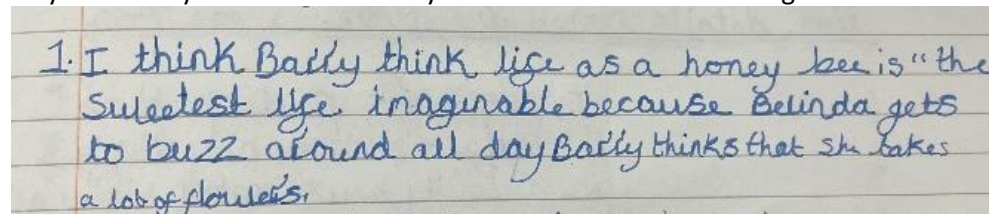 1. I think Barry think life as a honey bee is "the
Sweetest life imaginable because Belinda gets
to buzz around all day Barry thinks that she takes
a lot of flowers.